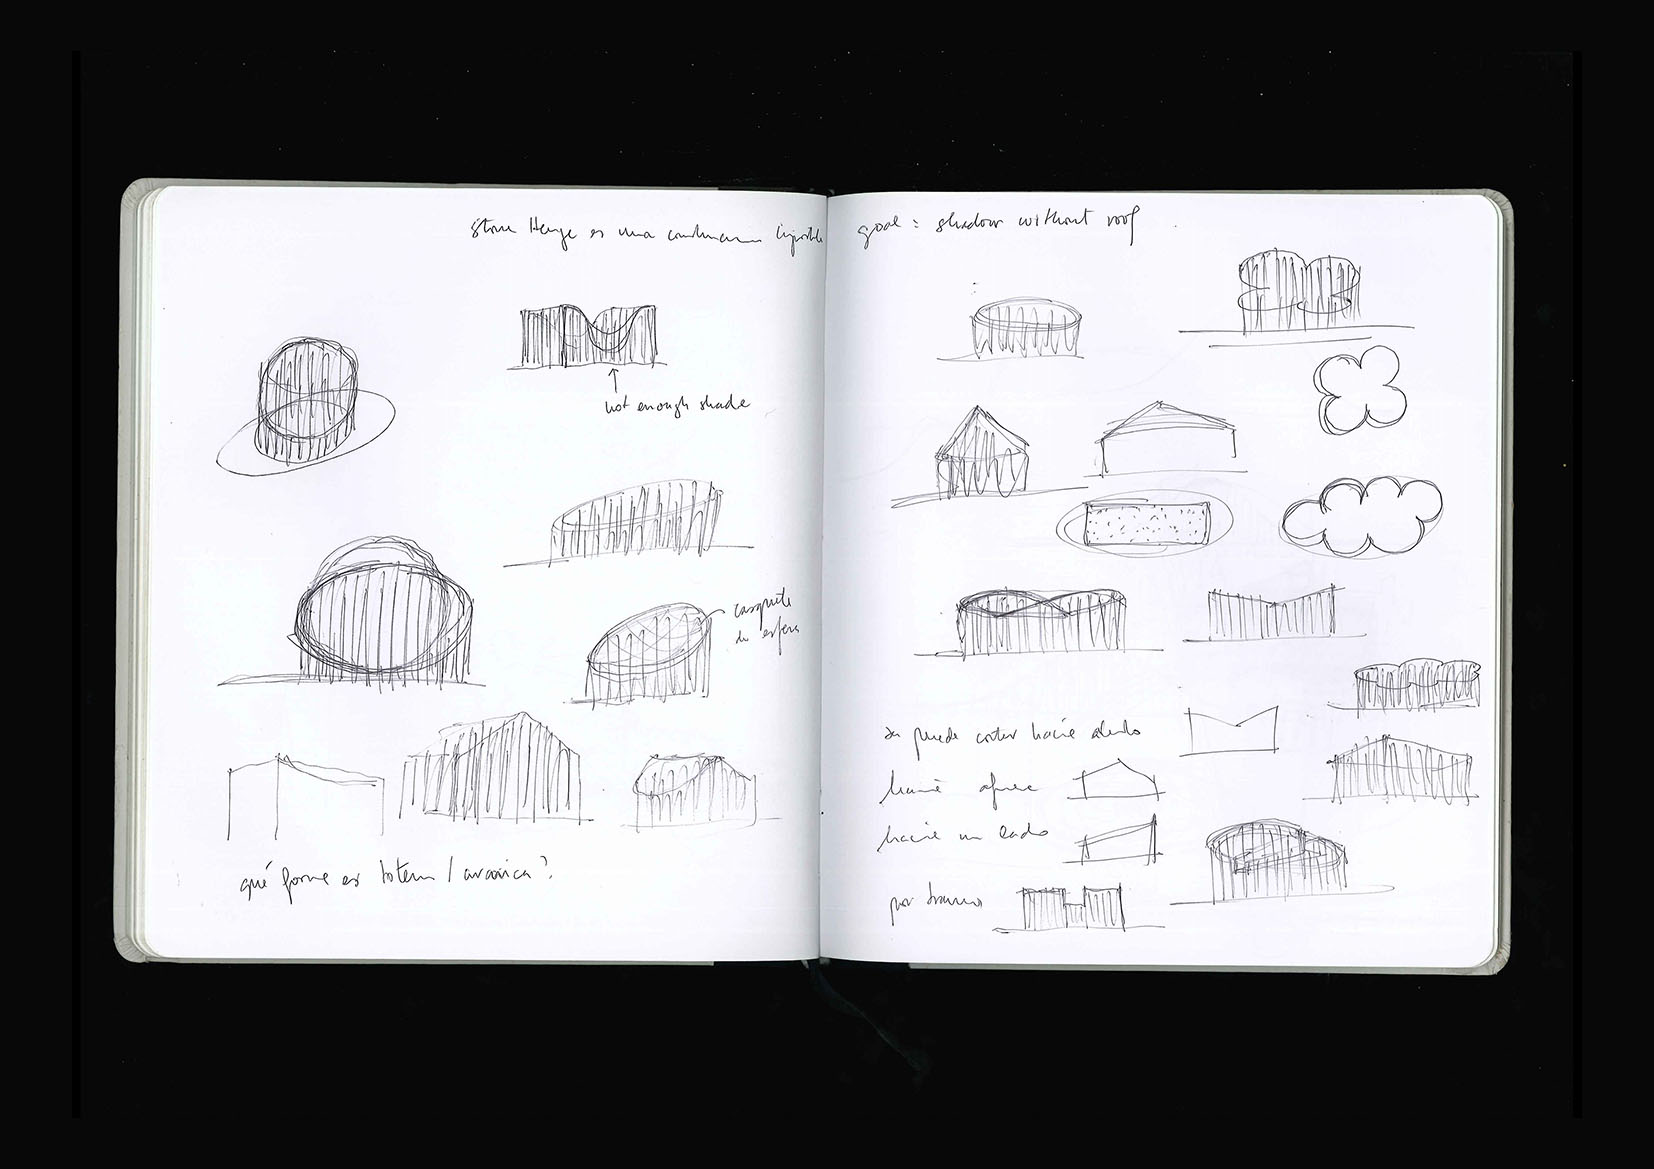 Stone Henge es una
not enough shade
casquete
de esfera
qué forma es totem /
goal = shadow without roof
se puede cortar hacia dentro
hacia afuera
hacia un lado
por tramos